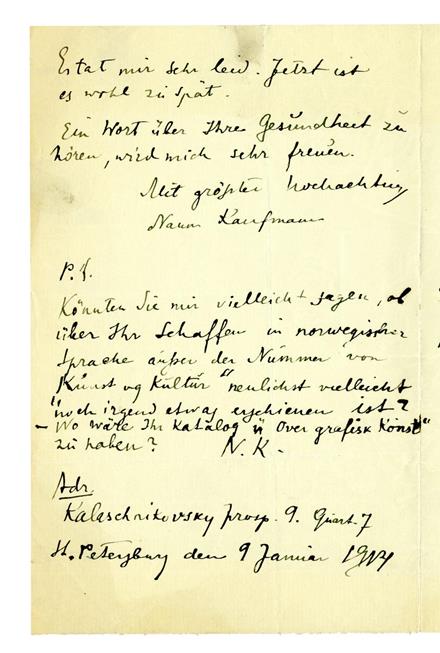 Es tat mir sehr leid. Jetzt ist
es wohl zu spät.
Ein Wort über Ihre Gesundheit zu
hören, wird mich sehr freuen.
Mit größter Hochachtung
Naum Kaufmann
P.S.
Könnten Sie mir vielleicht sagen, ob
über Ihr Schaffen in norwegischer
Sprache außer der Nummer von
"Kunst og Kultur" neulichst vielleicht
noch irgend etwas erschienen ist?
– Wo wäre Ihr Katalog "Over grafisk Konst"
zu haben? N.K.
Adr.
Kalaschnikovsky prosp. 9. Quart. 7
St. Petersburg den 9 Januar 1914